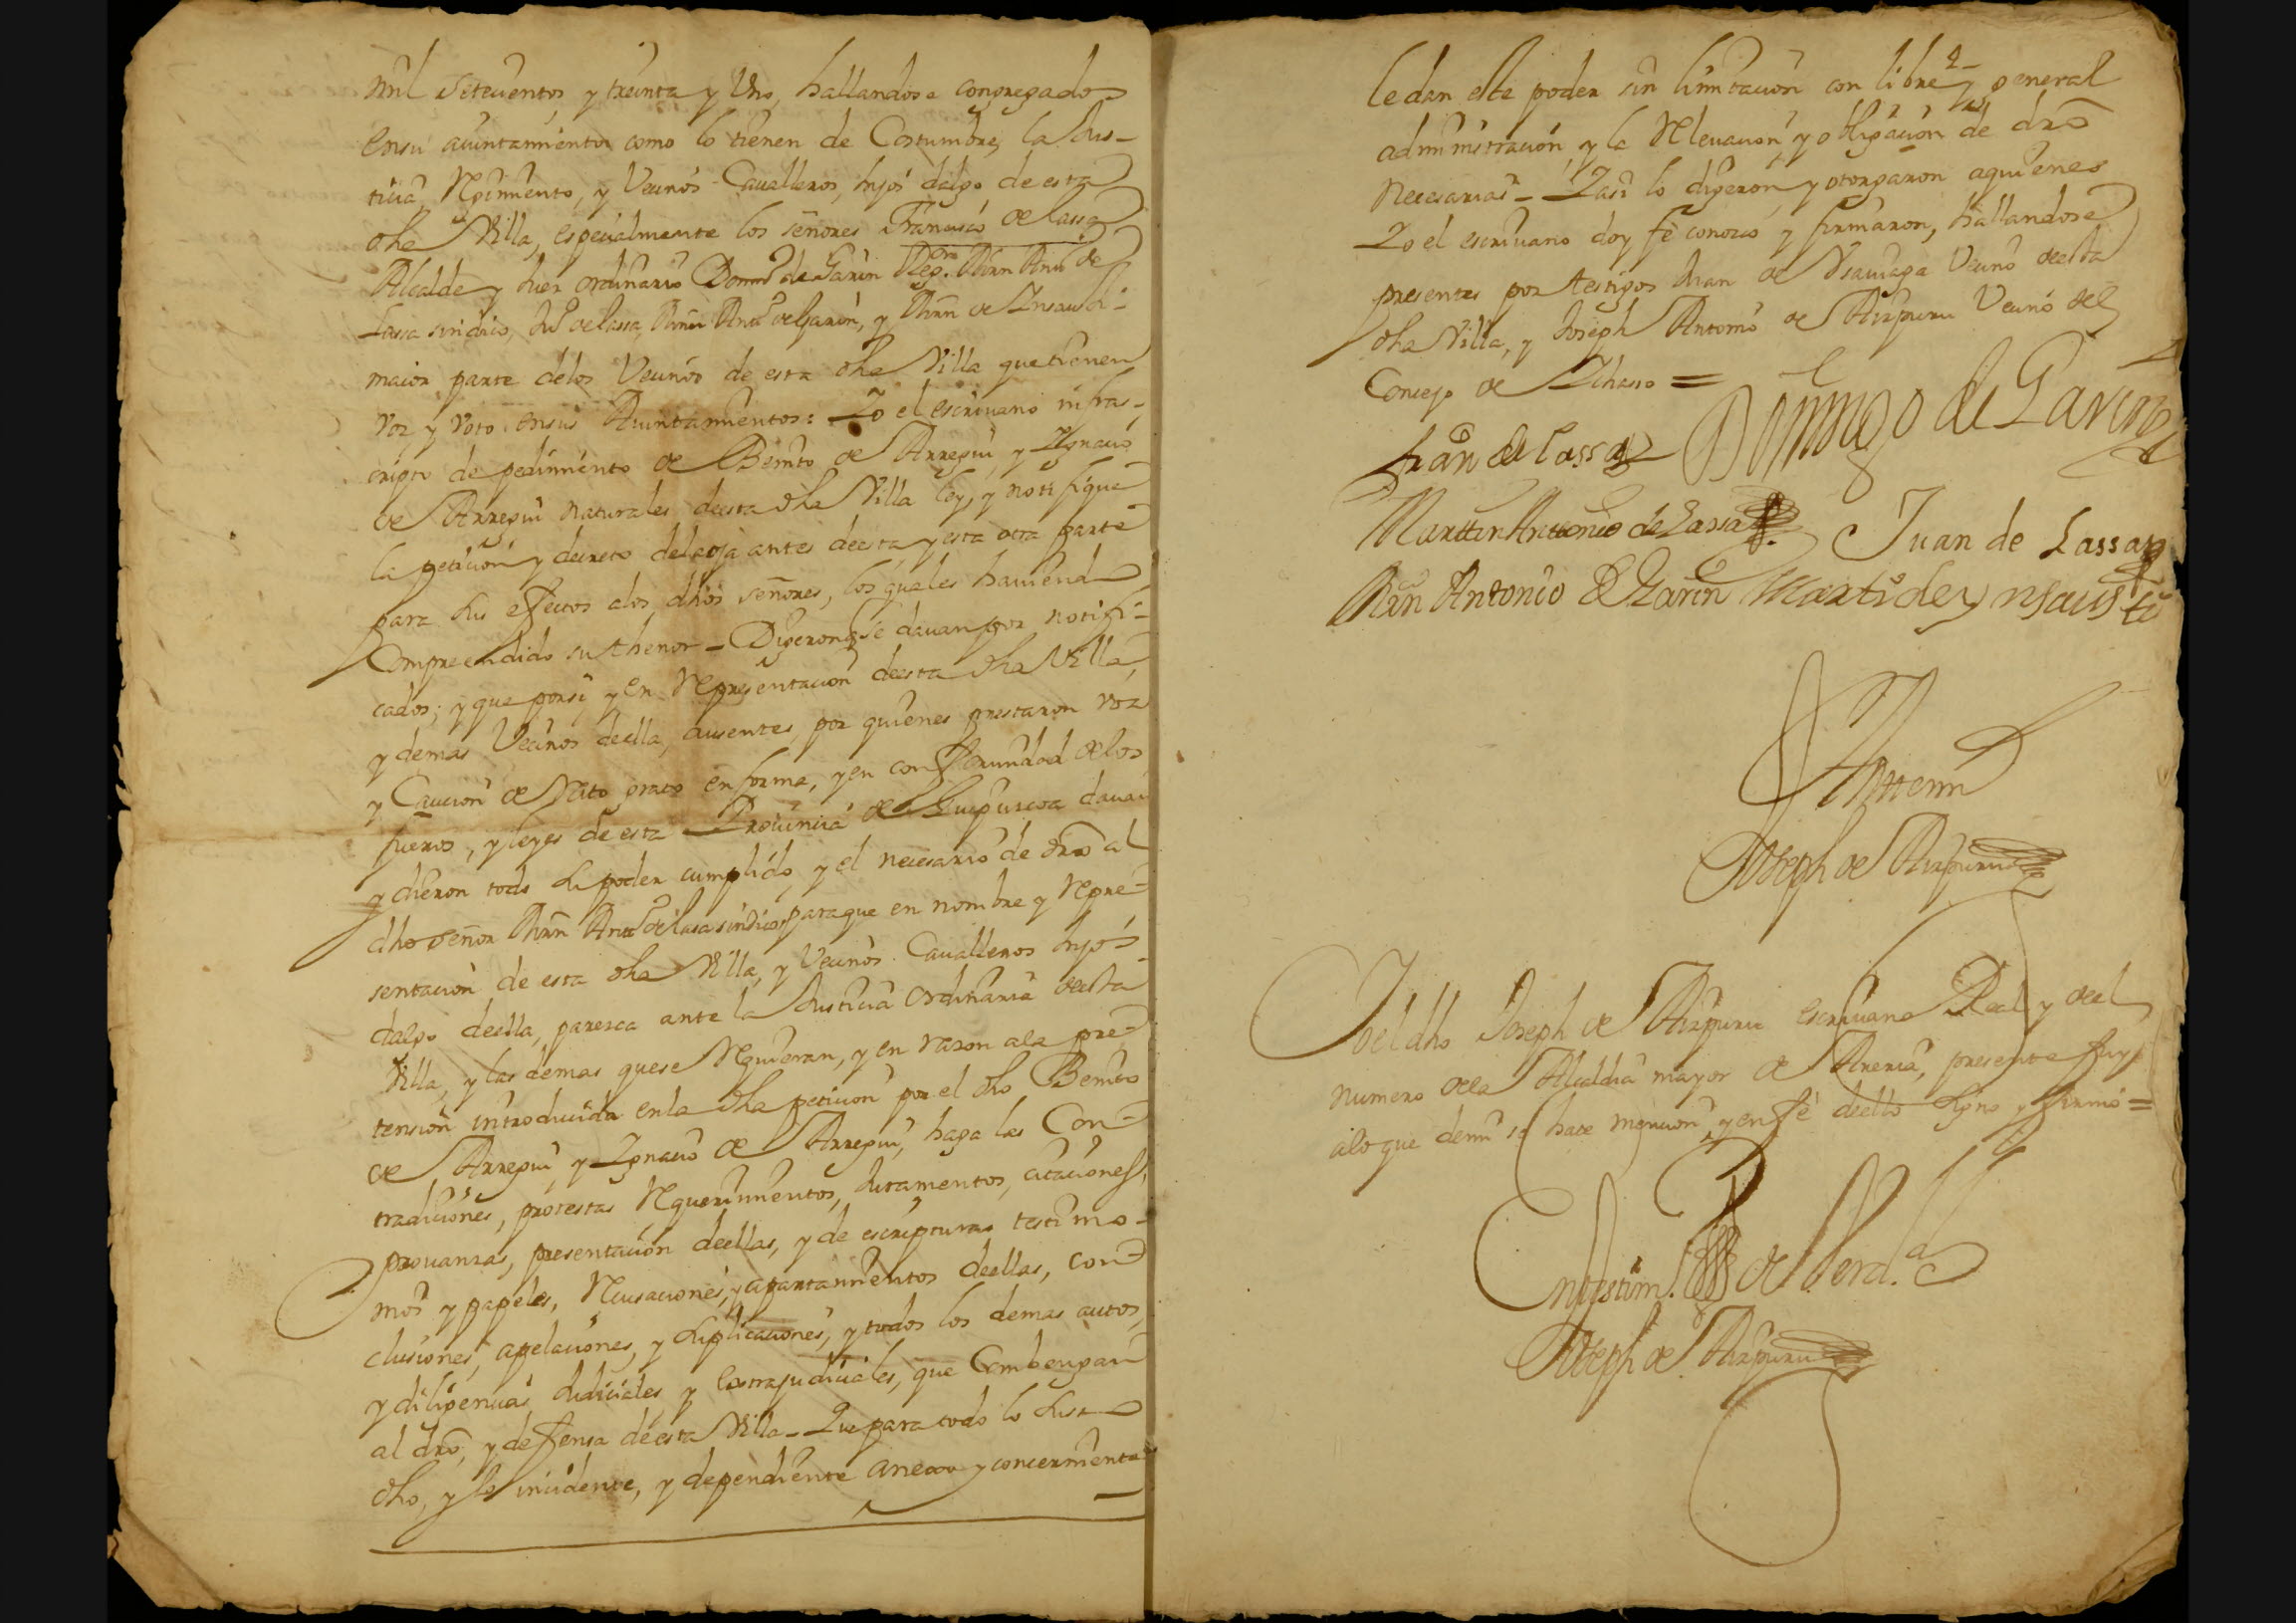 mil setecientos y treinta y Uno, hallandose congregados
ensu aiuntamiento como lo tienen de Costumbre, la Jus-
ticia, Regimiento, y Vecinos Caualleros, hijos dalgo de esta
dha Villa, especialmente los señores Francisco de Lassa
Alcalde y Juez ordinario Domo de Garin Regor. Mrn Anto de
Lassa sindico, Juo de Lassa, Mrn Anto de Garin, y Mrn de Insausti-
maior parte delos Vecinos de esta dha Villa que tienen
voz y voto ensus Aiuntamientos: Yo el escriuano infras-
cripto de pedimiento de Benito de Arregui, y Ignacio
de Arregui naturales deesta dha Villa ley, y notifique
la peticion y decreto dela oja antes deesta y esta otra parte
para sus efectos alos dhos señores, los quales hauiendo
Compreendido su thenor - Digeron se dauan por notifi-
cados; y que porsi y en Representacion deesta dha Villa,
y demas Vecinos deella, ausentes por quienes prestaron voz
y Caucion de Rato grato en forma, y en conformidad delos
fueros, y leyes de esta Prouincia de Guipuzcoa dauan
y dieron todo su poder cumplido, y el necesario de dro al
dho señor Mrn Anto de Lasa sindico, paraque en nombre y Repre-
sentacion de esta dha Villa, y Vecinos Caualleros hijos
dalgo deella, paresca ante la Justicia Ordinaria deesta
Villa, y las demas quese Requieran, y en razon ala pre-
tension introducida enla dha peticion por el dho Benito
de Arregui, y Ignacio de Arregui, haga las Con-
tradiciones, protestas Requerimientos, Juramentos, citaciones,
prouanzas, presentacion deellas, y de escripturas testimo-
nios y papeles, Recusaciones, y apartamientos deellas, con-
clusiones, apelaciones, y suplicaciones, y todos los demas autos,
y diligencias Judiciales, y extrajudiciales, que Combengan
al dro, y defensa deesta Villa - Que para todo lo suso
dho, y lo incidente, y dependiente anexo y concerniente
ledan este poder sin limitacion con libre y general
administracion, y la Releuacion, y obligacion de dro
necesarias - Yasi lo digeron, y otorgaron aquienes
Yo el escriuano doy fe conozco y firmaron, hallandose
presentes por testigos Juan de Vsauiaga Vecino deesta
dha Villa, y Joseph Antonio de Aizpuru Vecino del
Consejo de Ichaso =
Fran de Lassa Domingo de Garin
Marttin Anttonio de Lassa Juan de Lassa
Mrn Antonio de Garin Marti de ynsausti
Antte mi
Joseph de Aizpuru
Yo el dho Joseph de Aizpuru escriuano Real y del
numero dela Alcaldia mayor de Areria, presente fuy
alo que de mi se hace mencion y en fe deello signo y firmo =
En testim. de Verd.a
Joseph de Aizpuru